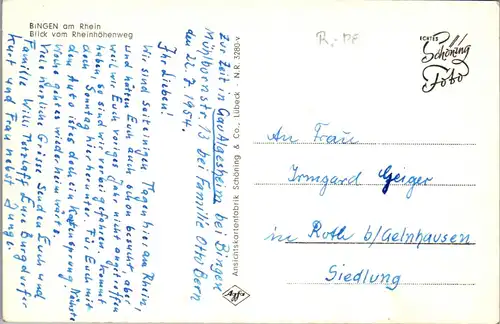 BiNGEN am Rhein
Blick vom Rheinhöhenweg
R.-PF
ECHTES
Schöning
Foto
zur Zeit in Gau Algesheim bei Bingen
Mühbornstr. 13 bei Familie Otto Bern
d. 22.7.1954.
Ihr Lieben!
Wir sind seit einigen Tagen hier am Rhein,
und hätten Euch auch schon besucht, aber
weil wir Euch voriges Jahr nicht angetroffen
haben, so sind wir vorbei gefahren. Kommt
doch Sonntag hier herunter. Für Euch mit
dem Auto ist es doch ein Katzensprung. Nächste
Woche gehts wieder heimwärts.
Viele herzliche Grüsse senden Euch und
Familie Willi Petzlaff Eure Burgdorfer
Kurt und Frau nebst Junge.
Ansichtskartenfabrik Schöning & Co., Lübeck · N.R. 3280-v
Agfa
An Frau
Irmgard Geiger
in Roth b/Gelnhausen
Siedlung